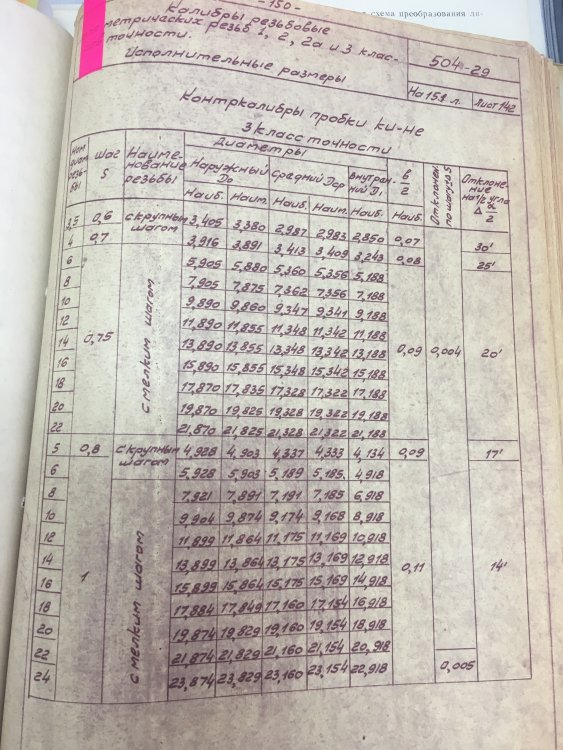 -150-
схема преобразования ли-
Калибры резьбовые
метрических резьб 1, 2, 2а и 3 клас-
точности.
Исполнительные размеры
504-29
На 151 л. Лист 142
Контркалибры пробки КИ-НЕ
3 класс точности
Ном. диам. резь-бы
Шаг S
Наиме-нование резьбы
Диаметры
Наружный До
Средний Дср
Внутрен-ний Д1
в/2
Отклонен. по шагу ±δS
Отклоне-ние на 1/2 угла Δ α/2
Наиб. Наим. Наиб. Наим. Наиб. Наиб.
3,5 0,6 с крупным шагом 3,405 3,380 2,987 2,983 2,850 0,07 30'
4 0,7 3,916 3,891 3,413 3,409 3,243 0,08 25'
6 0,75 с мелким шагом 5,905 5,880 5,360 5,356 5,188 0,09 0,004 20'
8 7,905 7,875 7,362 7,356 7,188
10 9,890 9,860 9,347 9,341 9,188
12 11,890 11,855 11,348 11,342 11,188
14 13,890 13,855 13,348 13,342 13,188
16 15,890 15,855 15,348 15,342 15,188
18 17,870 17,835 17,328 17,322 17,188
20 19,870 19,825 19,328 19,322 19,188
22 21,870 21,825 21,328 21,322 21,188
5 0,8 с крупным шагом 4,928 4,903 4,337 4,333 4,134 0,09 17'
6 1 с мелким шагом 5,928 5,903 5,189 5,185 4,918 0,11 14'
8 7,921 7,891 7,191 7,185 6,918
10 9,904 9,874 9,174 9,168 8,918
12 11,899 11,864 11,175 11,169 10,918
14 13,899 13,864 13,175 13,169 12,918
16 15,899 15,864 15,175 15,169 14,918
18 17,884 17,849 17,160 17,154 16,918
20 19,874 19,829 19,160 19,154 18,918
22 21,874 21,829 21,160 21,154 20,918 0,005
24 23,874 23,829 23,160 23,154 22,918